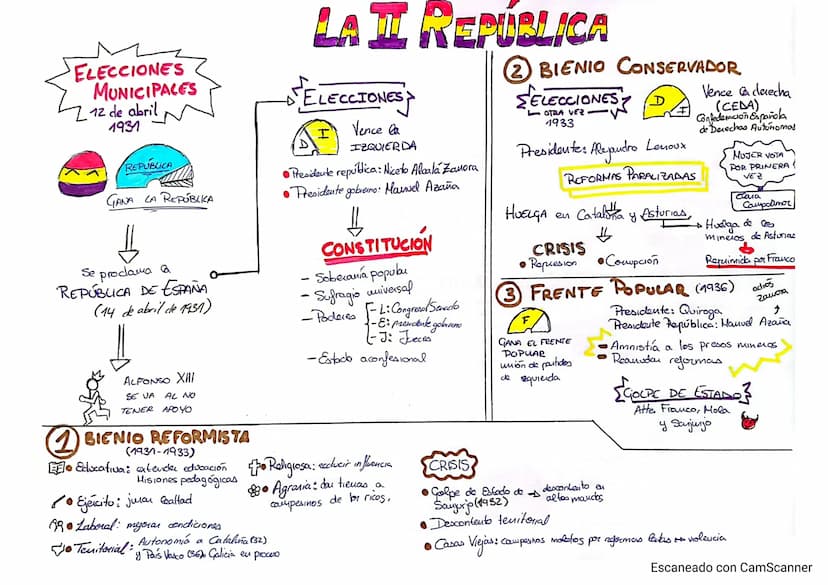 LA II REPÚBLICA
ELECCIONES
MUNICIPALES
12 de abril
1931
REPÚBLICA
GANA LA REPÚBLICA
Se proclama la
REPÚBLICA DE ESPAÑA
(14 de abril de 1931)
ALFONSO XIII
SE VA AL NO
TENER APOYO
ELECCIONES
D I
Vence la
IZQUIERDA
Presidente república: Niceto Alcalá Zamora
Presidente gobierno: Manuel Azaña
CONSTITUCIÓN
- Soberanía popular
- Sufragio universal
- Poderes
- L: Congreso/Senado
- E: presidente gobierno
- J: Jueces
- Estado aconfesional
1 BIENIO REFORMISTA
(1931-1933)
Educativa: extender educación
Misiones pedagógicas
Ejército: jurar lealtad
Laboral: mejorar condiciones
Territorial: Autonomía a Cataluña (32)
y País Vasco (36) Galicia en proceso
Religiosa: reducir influencia
Agraria: dar tierras a
campesinos de los ricos.
CRISIS
Golpe de Estado de
Sanjurjo (1932)
descontento en
altos mandos
Descontento territorial
Casas Viejas: campesinos molestos por reformas lentas violencia
2 BIENIO CONSERVADOR
ELECCIONES
OTRA VEZ
1933
D I
Vence la derecha
(CEDA)
Confederación Española
de Derechas Autónomas
Presidente: Alejandro Lerroux
REFORMAS PARALIZADAS
MUJER VOTA
POR PRIMERA
VEZ
Clara
Campoamor
HUELGA en Cataluña y Asturias
Huelga de los
mineros de Asturias
Reprimida por Franco
CRISIS
Represion
Corrupción
3 FRENTE POPULAR (1936)
adiós
Zamora
F
GANA EL FRENTE
POPULAR
unión de partidos
de izquierda
Presidente: Quiroga
Presidente República: Manuel Azaña
Amnistía a los presos mineros
Reanudar reformas
GOLPE DE ESTADO
Atte: Franco, Mola
y Sanjurjo
Escaneado con CamScanner